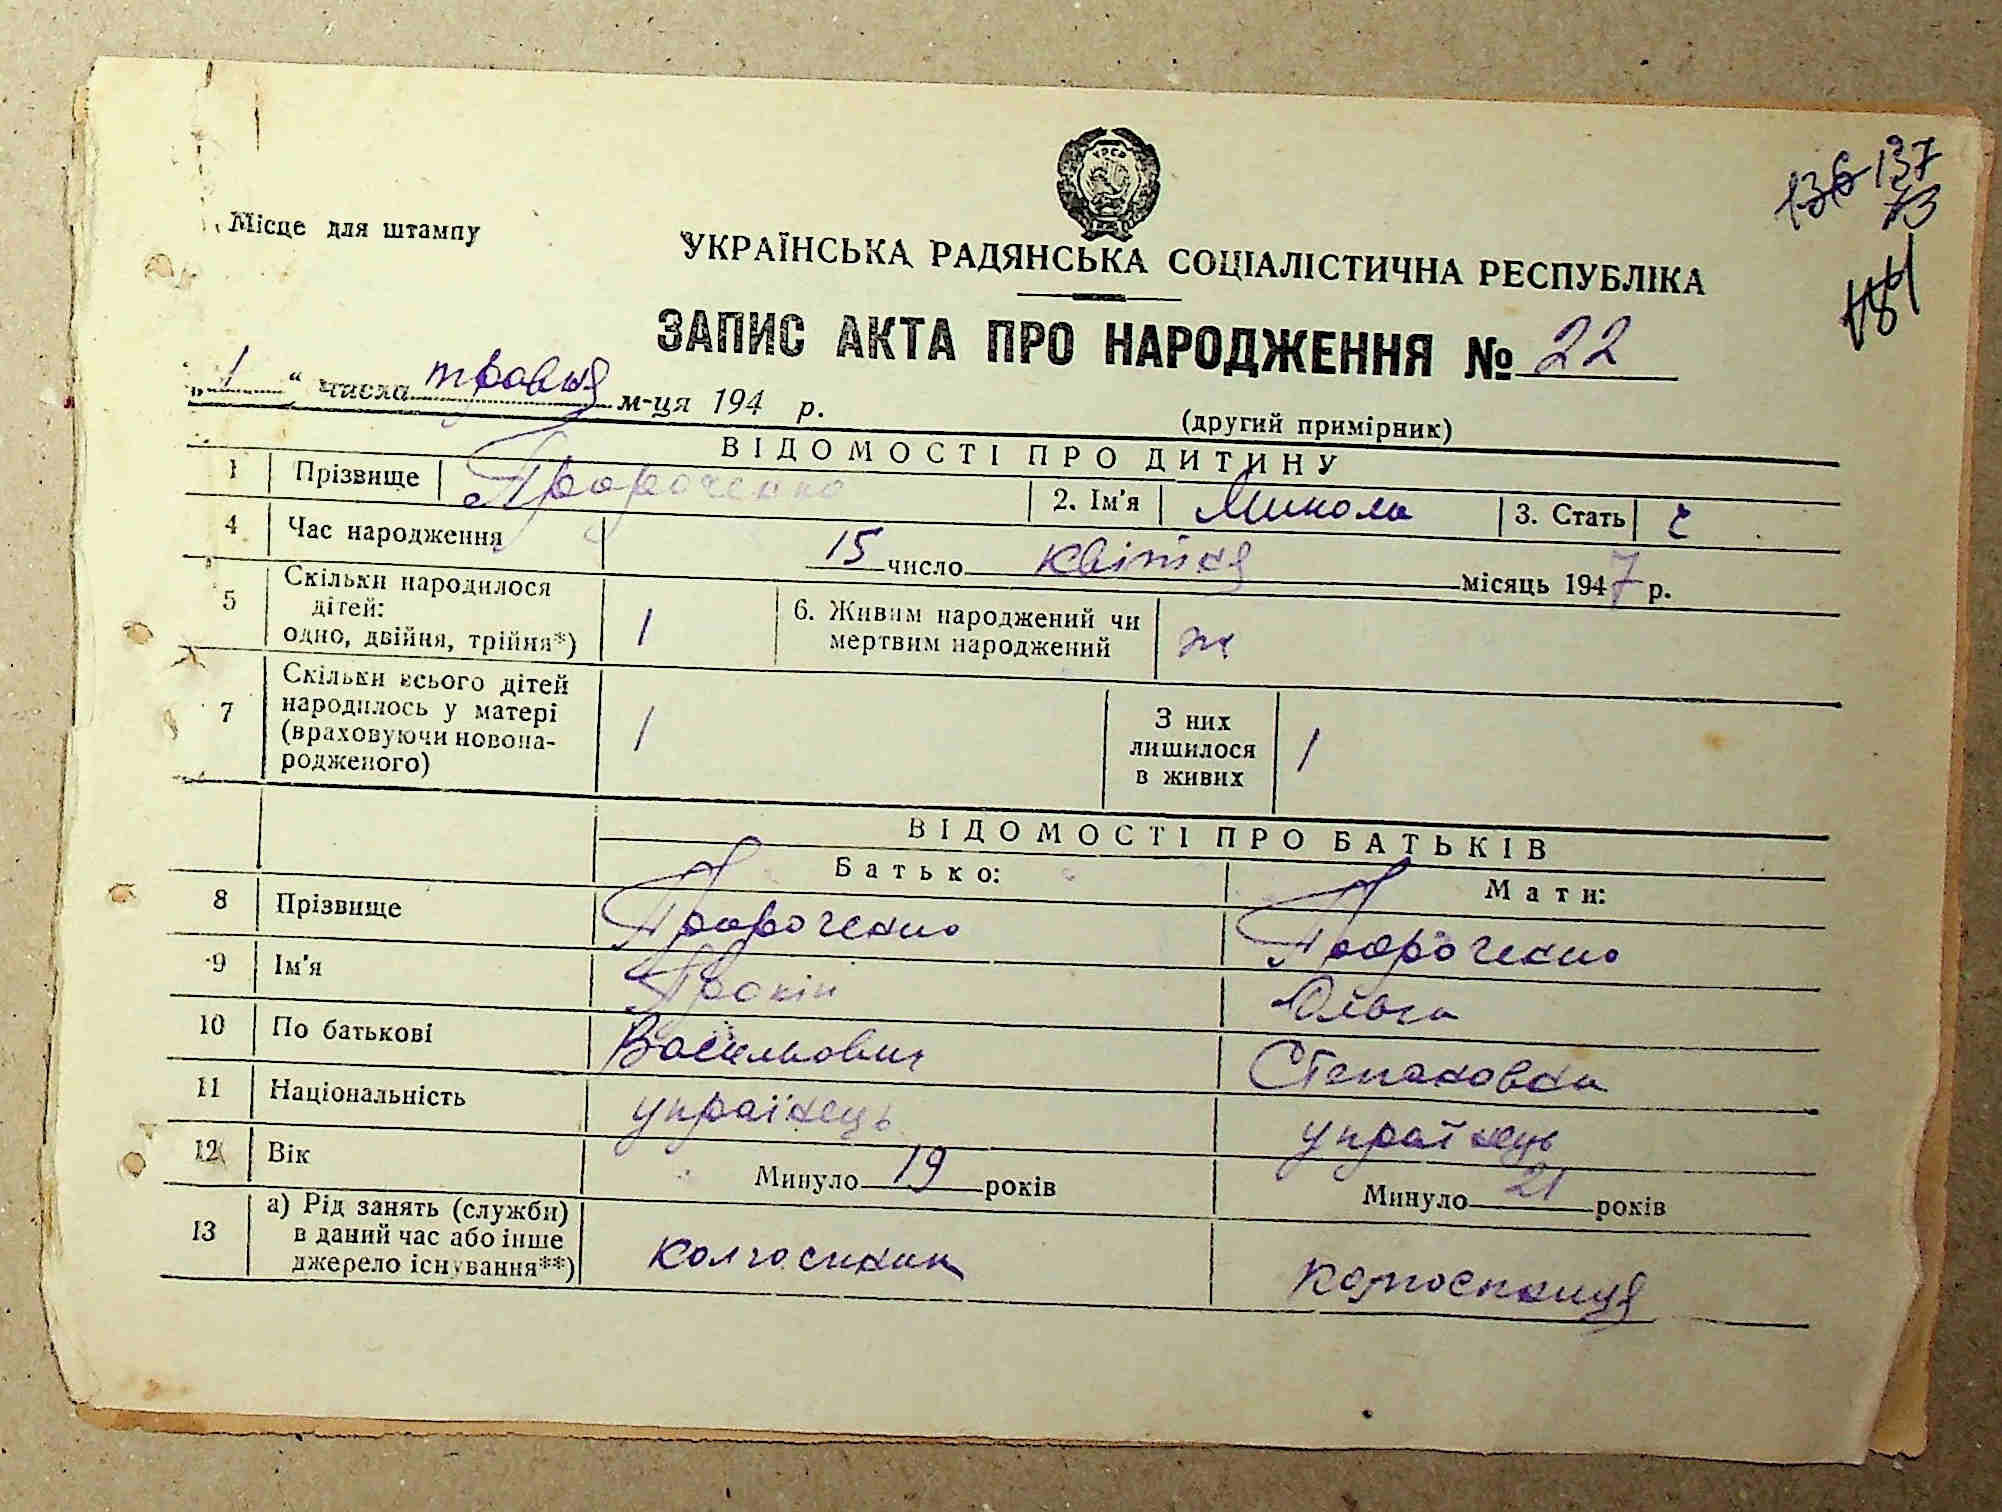 136 137
13
УРСР
Місце для штампу
УКРАЇНСЬКА РАДЯНСЬКА СОЦІАЛІСТИЧНА РЕСПУБЛІКА
ЗАПИС АКТА ПРО НАРОДЖЕННЯ № 22
„1“ числа травня м-ця 194 р.
(другий примірник)
ВІДОМОСТІ ПРО ДИТИНУ
1 Прізвище Пророченко 2. Ім'я Микола 3. Стать ч
4 Час народження 15 число квітня місяць 1947 р.
5 Скільки народилося дітей: одно, двійня, трійня*) 1 6. Живим народжений чи мертвим народжений ж
7 Скільки всього дітей народилось у матері (враховуючи новонародженого) 1 З них лишилося в живих 1
ВІДОМОСТІ ПРО БАТЬКІВ
Батько: Мати:
8 Прізвище Пророченко Пророченко
9 Ім'я Прокіп Ольга
10 По батькові Васильович Степановна
11 Національність українець українець
12 Вік Минуло 19 років Минуло 21 років
13 а) Рід занять (служби) в даний час або інше джерело існування**) колгоспник колгоспниця